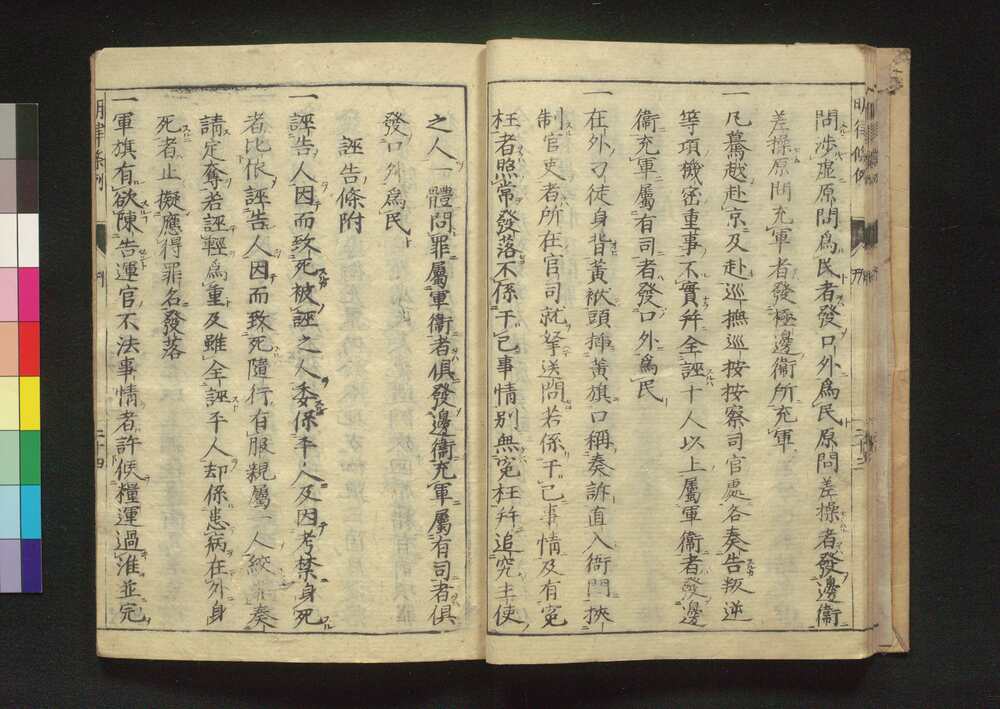 問渉虚原問爲民者發口外爲民原問差操者發邊衞
差操原問充軍者發極邊衞所充軍
一凡驀越赴京及赴巡撫巡按按察司官處各奏告叛逆
等項機密重事不實幷全誣十人以上屬軍衞者發邊
衞充軍屬有司者發口外爲民
一在外刁徒身背黃袱頭揷黃旗口稱奏訴直入衙門挾
制官吏者所在官司就拏送問若係干己事情及有寃
枉者照常發落不係干己事情別無寃枉幷追究主使
之人一體問罪屬軍衞者俱發邊衞充軍屬有司者俱
發口外爲民
誣告條附
一誣告人因而致死被誣之人委係平人及因考禁身死
者比依誣告人因而致死隨行有服親屬一人絞罪奏
請定奪若誣輕爲重及雖全誣平人却係患病在外身
死者止擬應得罪名發落
一軍旗有欲陳告運官不法事情者許候糧運過淮並完
明律條例
二十四